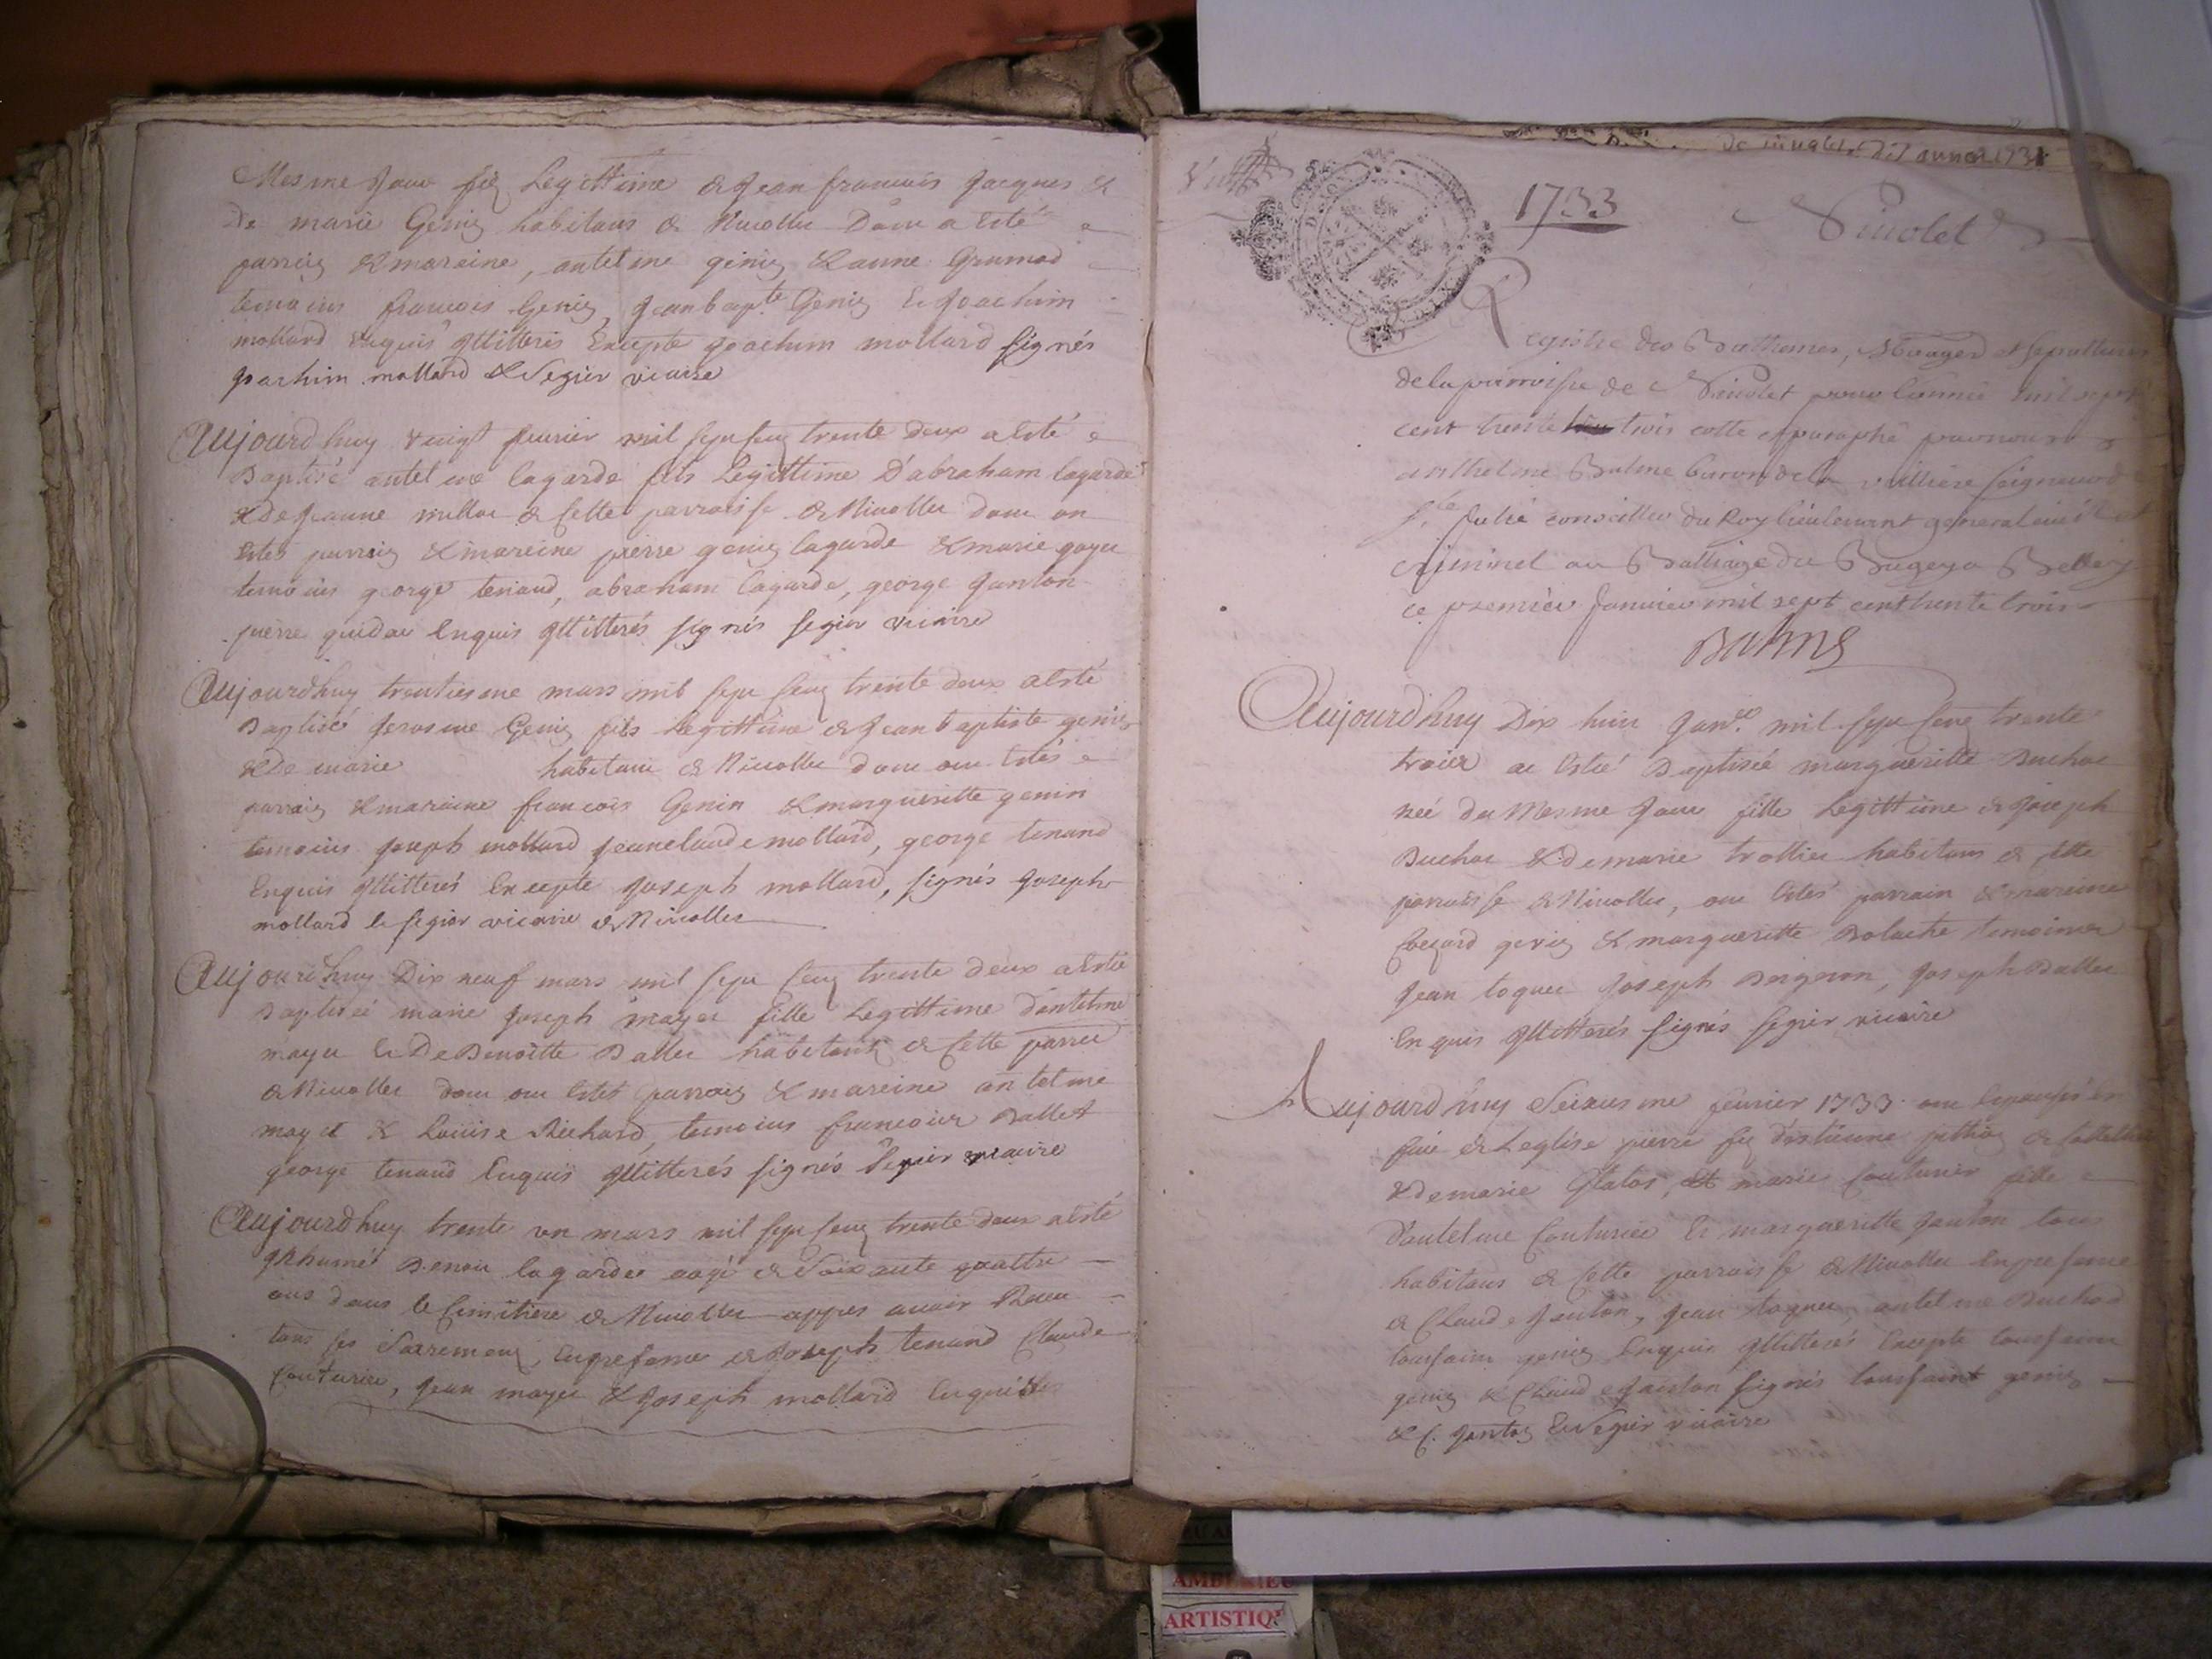 Mesme Jour fiz Legittime de Jean francois Jacques &
De marie Geniz habitans de Nivollet Dont a esté
parreiz & mareine, antelme geniz & anne Grumod
temoins francois Geniz, Jean bapte Geniz & Joachim
mollard Enquis Illitteres Excepte Joachim mollard signés
Joachim mollard & Segier vicaire
Aujourdhuy vingt feurier mil sept cenz trente deux a esté
Baptisé antelme lagarde fils Legittime D'abraham lagarde
& de Jeanne de cette parroisse de Nivollet dont on
estes parreiz & mareine pierre geniz lagarde & marie
temoins george tenand, abraham lagarde, george Janton
pierre Enquis Illitterés signés segier vicaire
Aujourdhuy trentiesme mars mil sept cenz trente deux a esté
Baptisé Jerosme Geniz fils Legittime de Jean baptiste geniz
& De marie habitans de Nivollet dont ont estés
parreiz & mareine francois Genin & margueritte genin
temoins Joseph mollard Jeanclaude mollard, george tenand
Enquis Illitterés Excepte Joseph mollard, signés Joseph
mollard & segier vicaire de Nivollet
Aujourdhuy Dix neuf mars mil sept cenz trente deux a esté
Baptiseé marie Joseph mayet fille Legittime d'antelme
mayet & De Benoitte Ballet habitans de cette parroi
de Nivollet dont ont estés parreiz & mareine antelme
mayet & Louise Richard, temoins francois Ballet
george tenand Enquis Illitterés signés Segier vicaire
Aujourdhuy trente un mars mil sept cenz trente deux a esté
Jnhumé Benoit lagarde aagé de Soixante quattre
ans dans le Cimitiere de Nivollet appres auoir Receu
tous ses Sacremenz, Enpresence de Joseph tenand Claude
Couturier, Jean mayet & Joseph mollard Enquis
de l'année 1731
1733
Nivolet
Registre des Bathemes, Mariages et sepultures
de la parroisse de Nivolet pour l'année mil sept
cent trente trois cotte et paraphé par nous
anthelme Balme baron de seigneur de
Ste Julie conseiller du Roy lieutenant general civil et
criminel au Balliage du Bugey a Belley
ce premier Janvier mil sept cent trente trois
Balme
Aujourdhuy Dix huit Janvr. mil sept cenz trente
trois ae Esté Baptiseé margueritte Buchot
neé du Mesme Jour fille Legittime de Joseph
Buchot & de marie trollier habitans de cette
parroisse de Nivollet, ont estés parrain & mareine
geniz & margueritte temoins
Jean toquet Joseph Bergeron, Joseph Ballet
Enquis Illitterés signés segier vicaire
Aujourd huy Seixiesme feurier 1733 ont Espousés En
face de Leglise pierre fiz d'estienne de
& de marie & marie Couturier fille
D'antelme Couturier & margueritte Janton tous
habitans de cette parroisse de Nivollet Enpresence
de Claude Janton, Jean toquet, antelme Buchot
toussaint geniz Enquis Illitterés Excepte toussaint
geniz & Claude Janton signés toussaint geniz
& C. Jantoz & Segier vicaire
ARTISTIQ